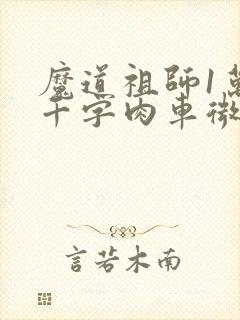 魔道祖師1萬
千字肉車微
言若木南